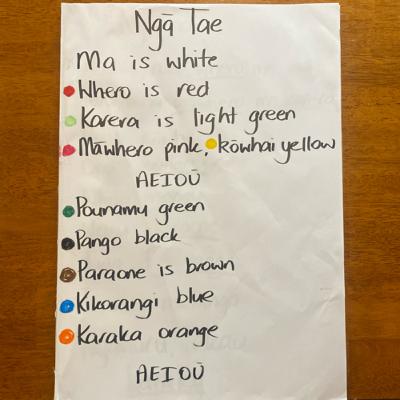 Ngā Tae
Ma is white
Whero is red
Karera is light green
Māwhero pink, kōwhai yellow
AEIOŪ
Pounamu green
Pango black
Paraone is brown
Kikorangi blue
Karaka orange
AEIOŪ